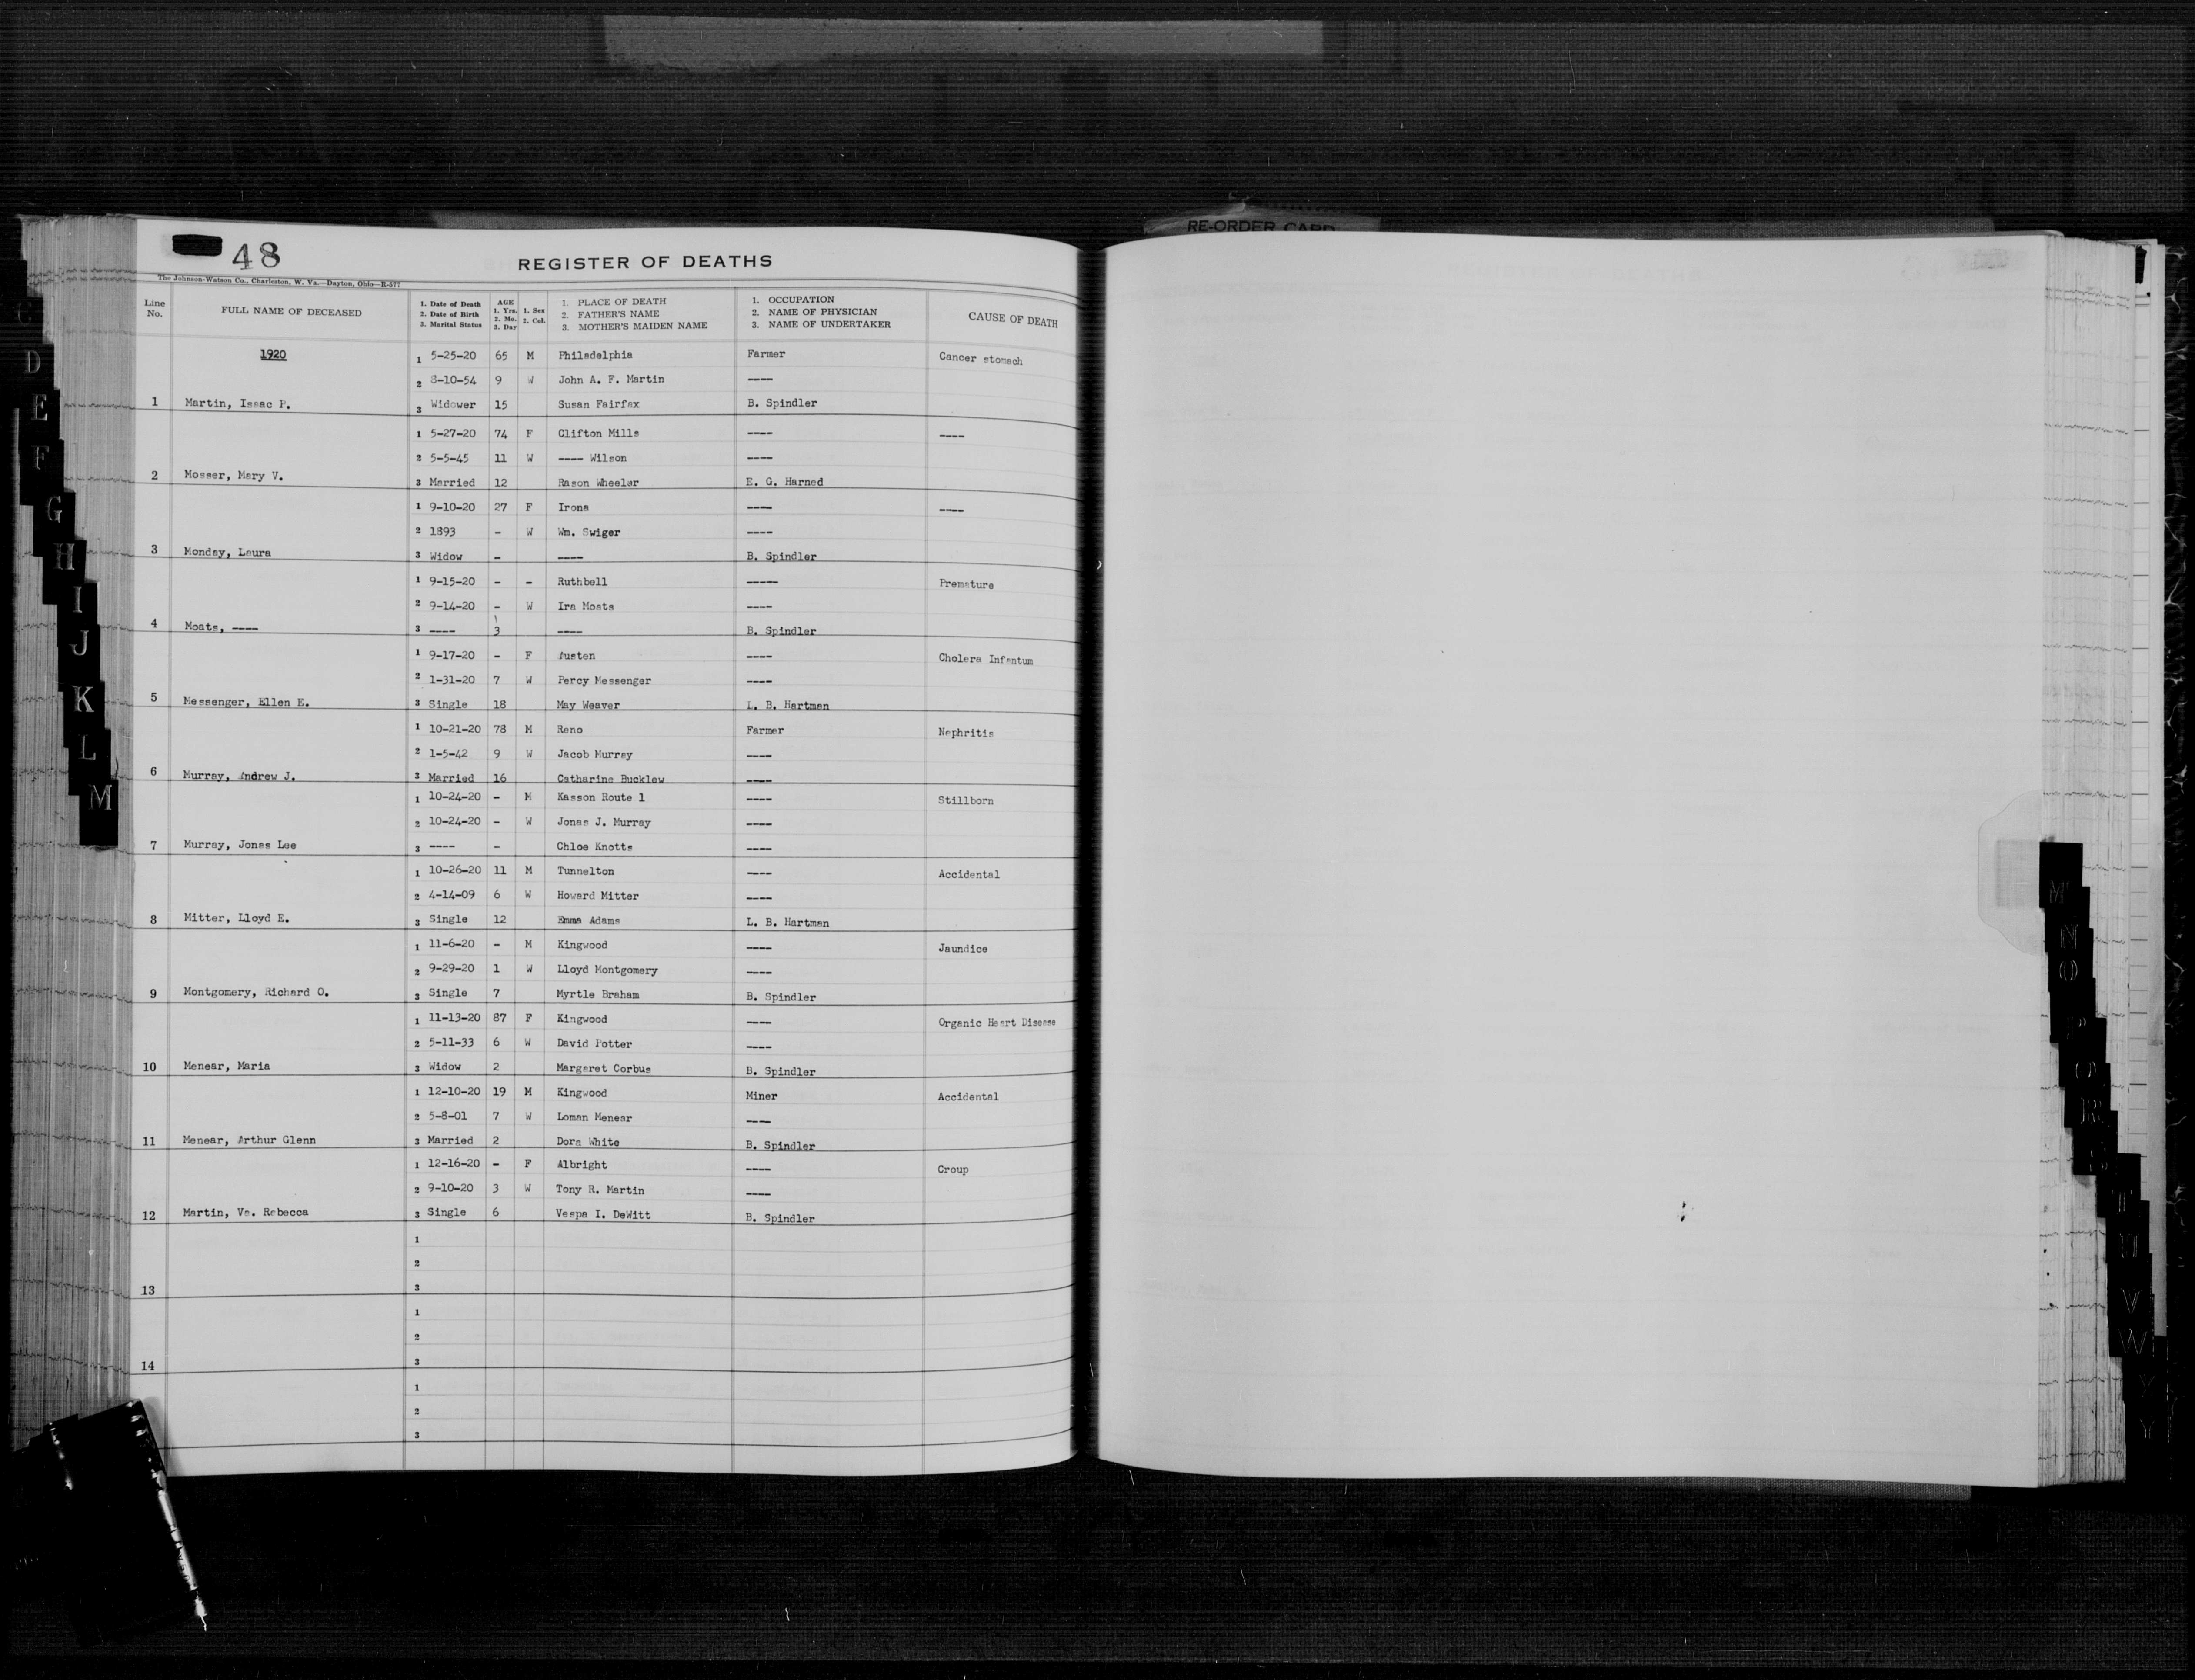 RE-ORDER CARD
48
REGISTER OF DEATHS
The Johnson-Watson Co., Charleston, W. Va.—Dayton, Ohio—R-577
Line No. FULL NAME OF DECEASED 1. Date of Death 2. Date of Birth 3. Marital Status AGE 1. Yrs. 2. Mo. 3. Day 1. Sex 2. Col. 1. PLACE OF DEATH 2. FATHER'S NAME 3. MOTHER'S MAIDEN NAME 1. OCCUPATION 2. NAME OF PHYSICIAN 3. NAME OF UNDERTAKER CAUSE OF DEATH
1920 1 5-25-20 65 M Philadelphia Farmer Cancer stomach
2 8-10-54 9 W John A. F. Martin ----
1 Martin, Issac P. 3 Widower 15 Susan Fairfax B. Spindler
1 5-27-20 74 F Clifton Mills ---- ----
2 5-5-45 11 W ---- Wilson ----
2 Mosser, Mary V. 3 Married 12 Rason Wheeler E. G. Harned
1 9-10-20 27 F Irona ---- ----
2 1893 - W Wm. Swiger ----
3 Monday, Laura 3 Widow - ---- B. Spindler
1 9-15-20 - - Ruthbell ----- Premature
2 9-14-20 - W Ira Moats ----
4 Moats, ---- 3 ---- 3 ---- B. Spindler
1 9-17-20 - F Austen ---- Cholera Infantum
2 1-31-20 7 W Percy Messenger ----
5 Messenger, Ellen E. 3 Single 18 May Weaver L. B. Hartman
1 10-21-20 78 M Reno Farmer Nephritis
2 1-5-42 9 W Jacob Murray ----
6 Murray, Andrew J. 3 Married 16 Catharine Bucklew ----
1 10-24-20 - M Kasson Route 1 ---- Stillborn
2 10-24-20 - W Jonas J. Murray ----
7 Murray, Jonas Lee 3 ---- - Chloe Knotts ----
1 10-26-20 11 M Tunnelton ---- Accidental
2 4-14-09 6 W Howard Mitter ----
8 Mitter, Lloyd E. 3 Single 12 Emma Adams L. B. Hartman
1 11-6-20 - M Kingwood ---- Jaundice
2 9-29-20 1 W Lloyd Montgomery ----
9 Montgomery, Richard O. 3 Single 7 Myrtle Braham B. Spindler
1 11-13-20 87 F Kingwood ---- Organic Heart Disease
2 5-11-33 6 W David Potter ----
10 Menear, Maria 3 Widow 2 Margaret Corbus B. Spindler
1 12-10-20 19 M Kingwood Miner Accidental
2 5-8-01 7 W Loman Menear ----
11 Menear, Arthur Glenn 3 Married 2 Dora White B. Spindler
1 12-16-20 - F Albright ---- Croup
2 9-10-20 3 W Tony R. Martin ----
12 Martin, Va. Rebecca 3 Single 6 Vespa I. DeWitt B. Spindler
1
2
13 3
1
2
14 3
1
2
3
C
D
E
F
G
H
I
J
K
L
M
M
N
O
P
Q
R
U
V
W
Y